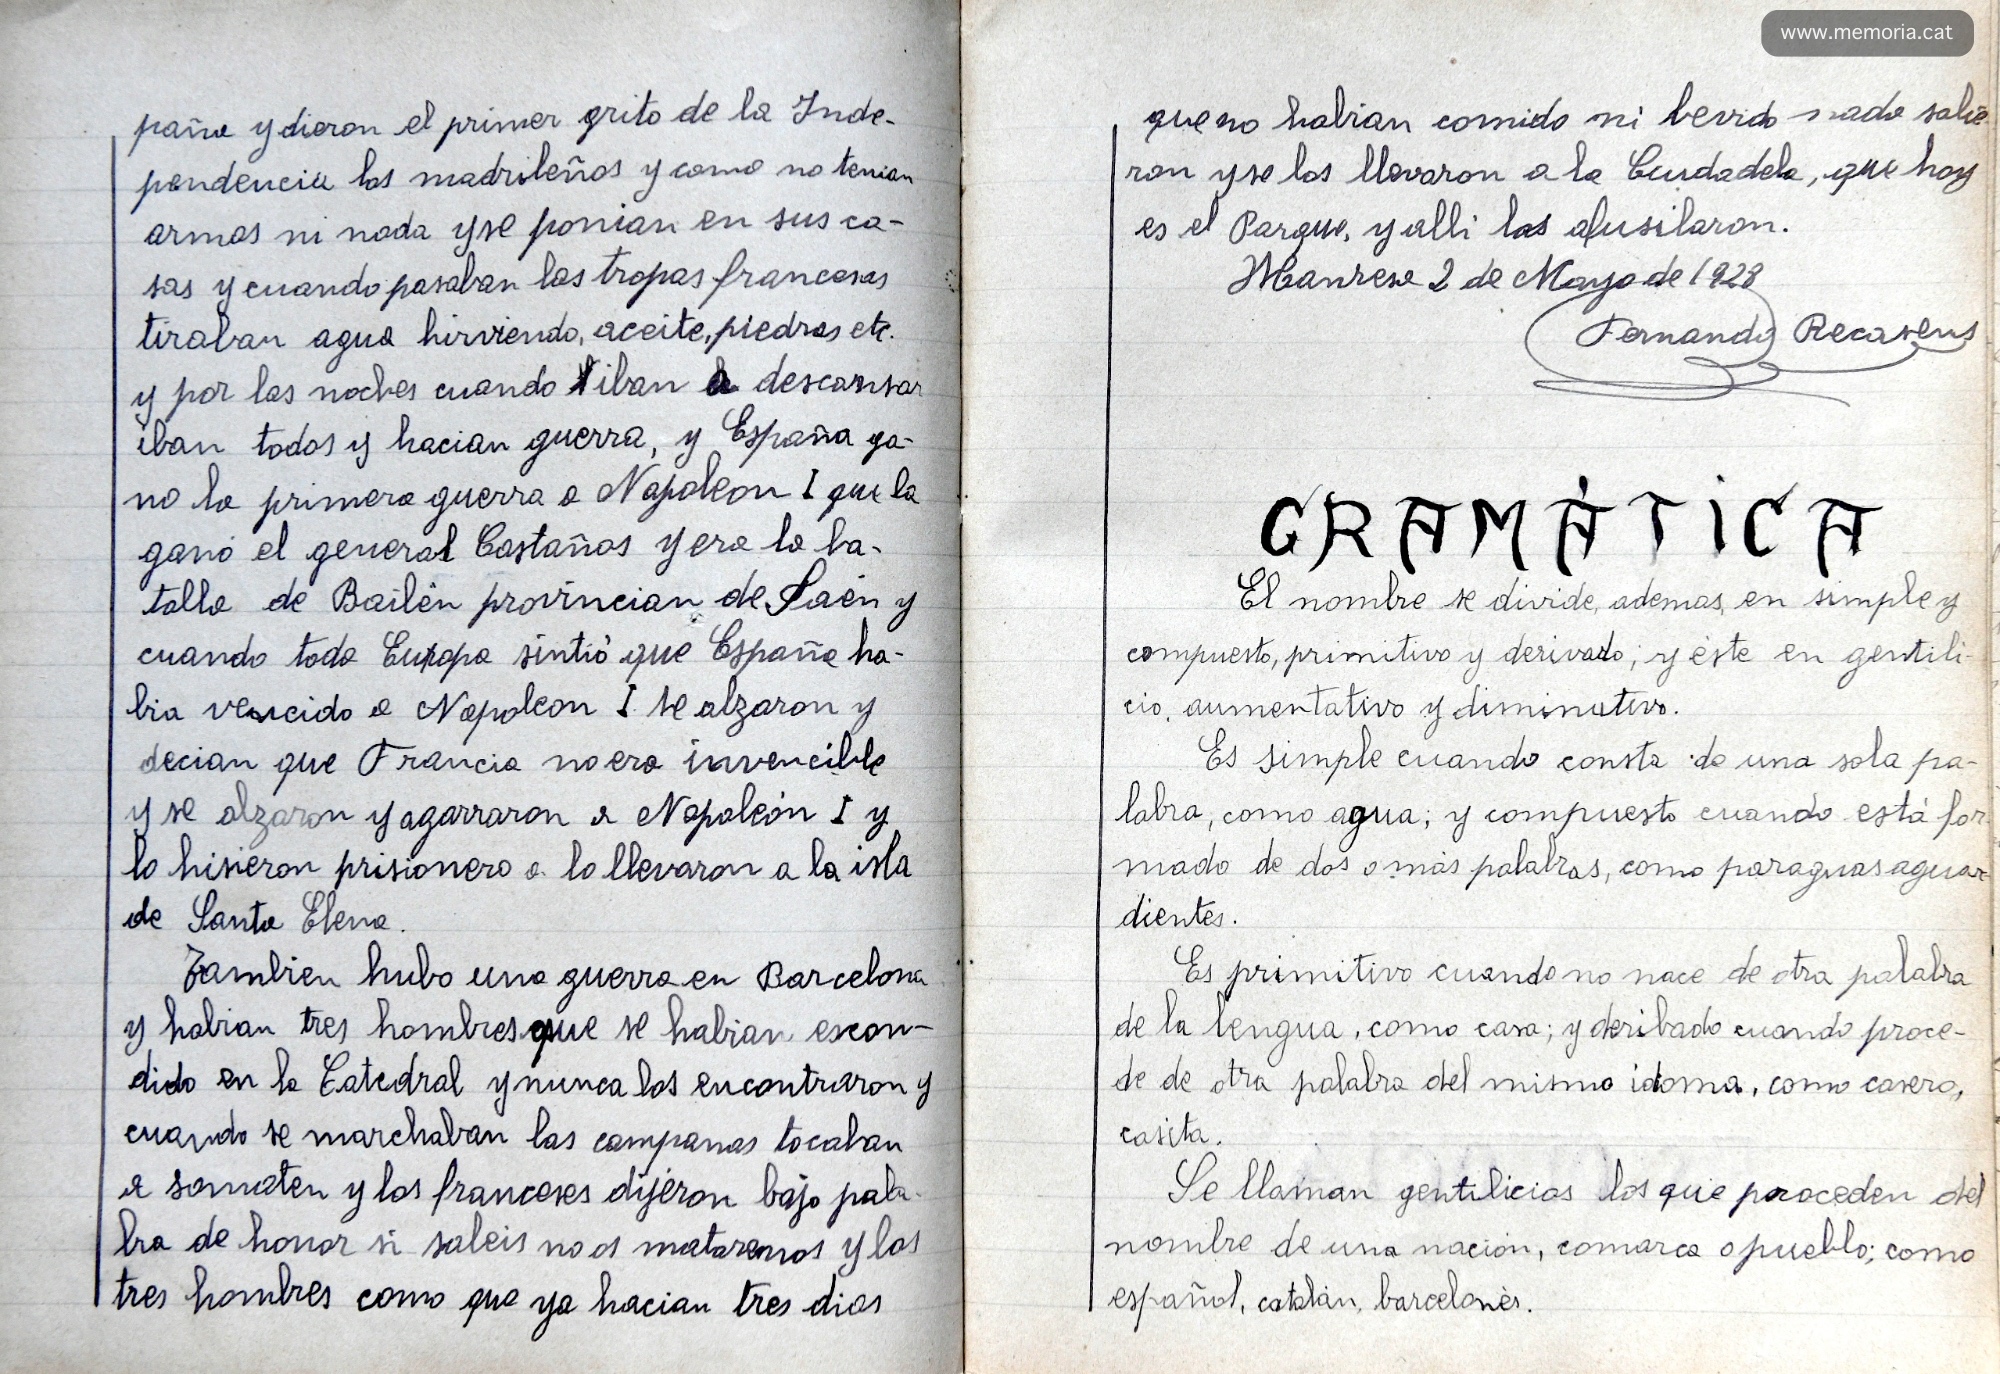 paña y dieron el primer grito de la Inde-
pendencia los madrileños y como no tenian
armas ni nada y se ponian en sus ca-
sas y cuando pasaban las tropas francesas
tiraban agua hirviendo, aceite, piedras etc.
y por las noches cuando iban a descansar
iban todos y hacian guerra, y España ga-
no la primera guerra a Napoleon I que la
ganó el general Castaños y era la ba-
talla de Bailén provincian de Jaén y
cuando toda Europa sintió que España ha-
bia vencido a Napoleon I se alzaron y
decian que Francia no era invencible
y se alzaron y agarraron a Napoleón I y
lo hisieron prisionero a lo llevaron a la isla
de Santa Elena.
Tambien hubo una guerra en Barcelona
y habian tres hombres que se habian escon-
dido en la Catedral y nunca los encontraron y
cuando se marchaban las campanas tocaban
a somaten y los franceses dijéron bajo pala-
bra de honor si saleis no os mataremos y los
tres hombres como que ya hacian tres dias
www.memoria.cat
que no habian comido ni bevido nada salie-
ron y se los llevaron a la Ciudadela, que hoy
es el Parque, y alli los afusilaron.
Manresa 2 de Mayo de 1928
Fernando Recasens
GRAMÁTICA
El nombre se divide, ademas, en simple y
compuesto, primitivo y derivado; y éste en gentili-
cio, aumentativo y diminutivo.
Es simple cuando consta de una sola pa-
labra, como agua; y compuesto cuando está for-
mado de dos o más palabras, como paraguas aguar-
dientes.
Es primitivo cuando no nace de otra palabra
de la lengua, como casa; y deribado cuando proce-
de de otra palabra del mismo idoma, como casero,
casita.
Se llaman gentilicios los que proceden del
nombre de una nación, comarca o pueblo; como
español, catalán, barcelonés.